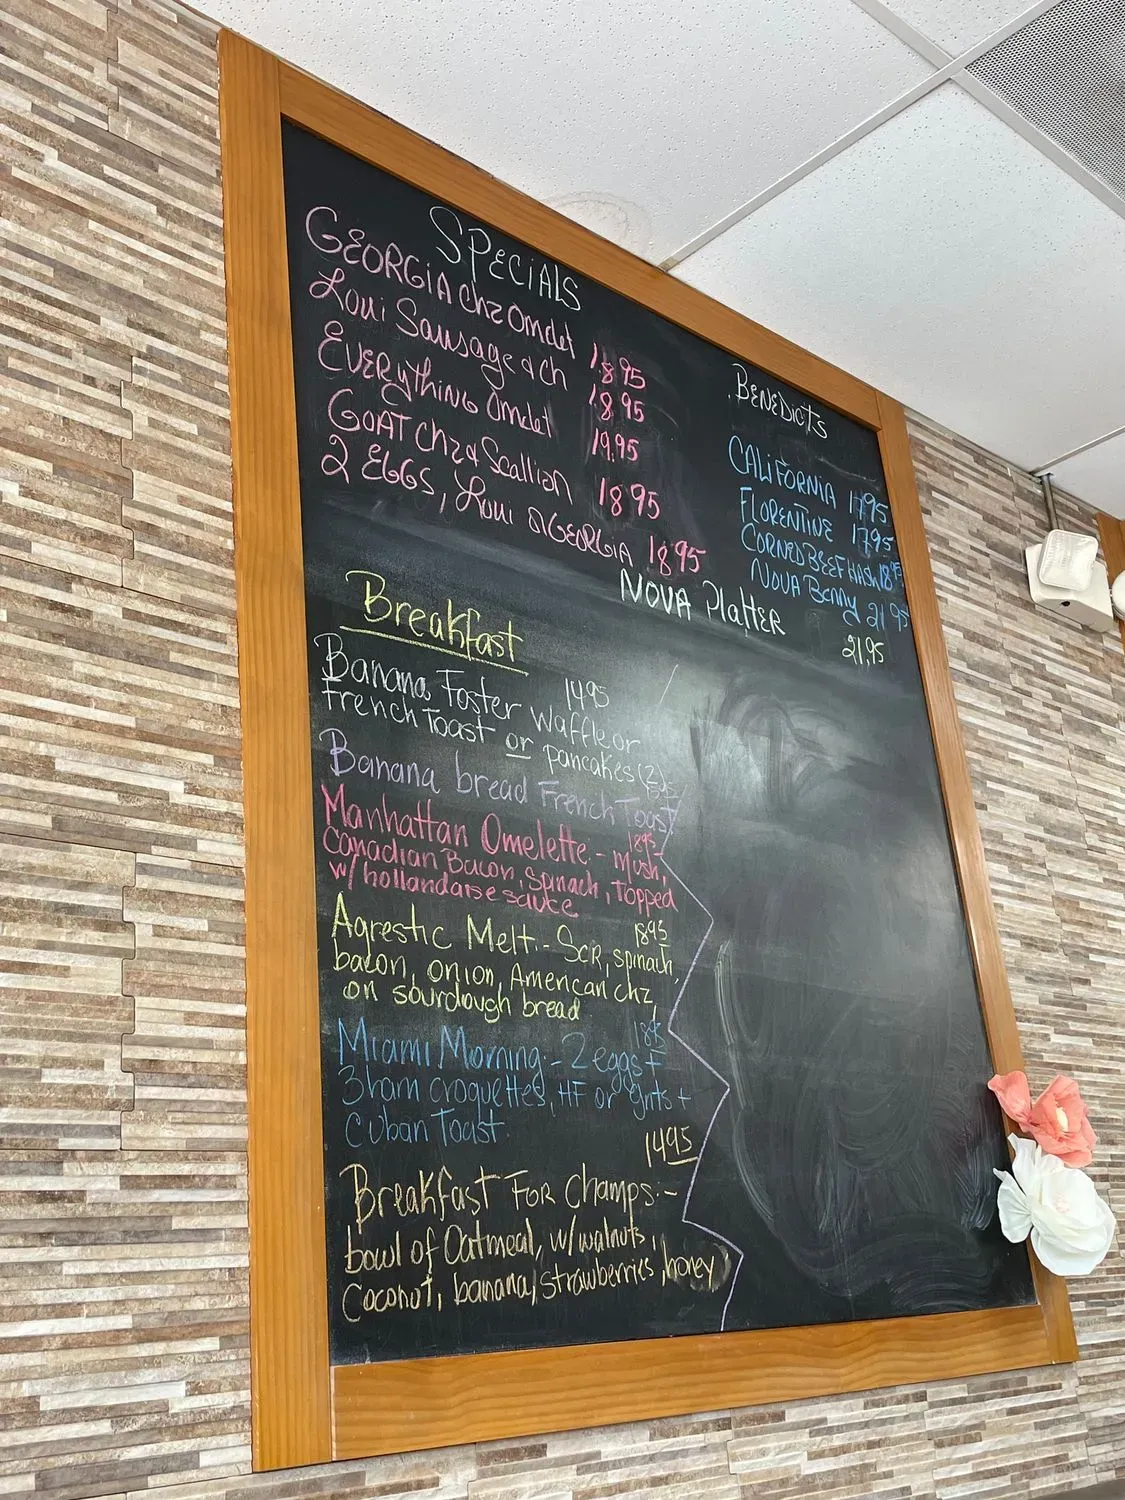 SPECIALS
GEORGIA chz Omelet 18.95
Loui Sausage & Ch 18.95
EVERything Omelet 19.95
GOAT chz & Scallion 18.95
2 EGGS, Loui & GEORGIA 18.95
BENEDICTS
CALIFORNIA 17.95
FLORENTINE 17.95
CORNED BEEF HASH 18.95
NOVA Benny 21.95
NOVA PlattER
21.95
Breakfast
Banana Foster Waffle or 14.95
French Toast or pancakes (2)
Banana bread French Toast
Manhattan Omelette - Mush, 18.95
Canadian Bacon, spinach, Topped
w/ hollandaise sauce
Agrestic Melt - Scr, spinach, 18.95
bacon, onion, American chz
on sourdough bread
Miami Morning - 2 eggs + 18.95
3 ham croquettes, HF or grits +
Cuban Toast.
14.95
Breakfast For Champs:-
bowl of Oatmeal, w/ walnuts,
Coconut, banana, strawberries, honey